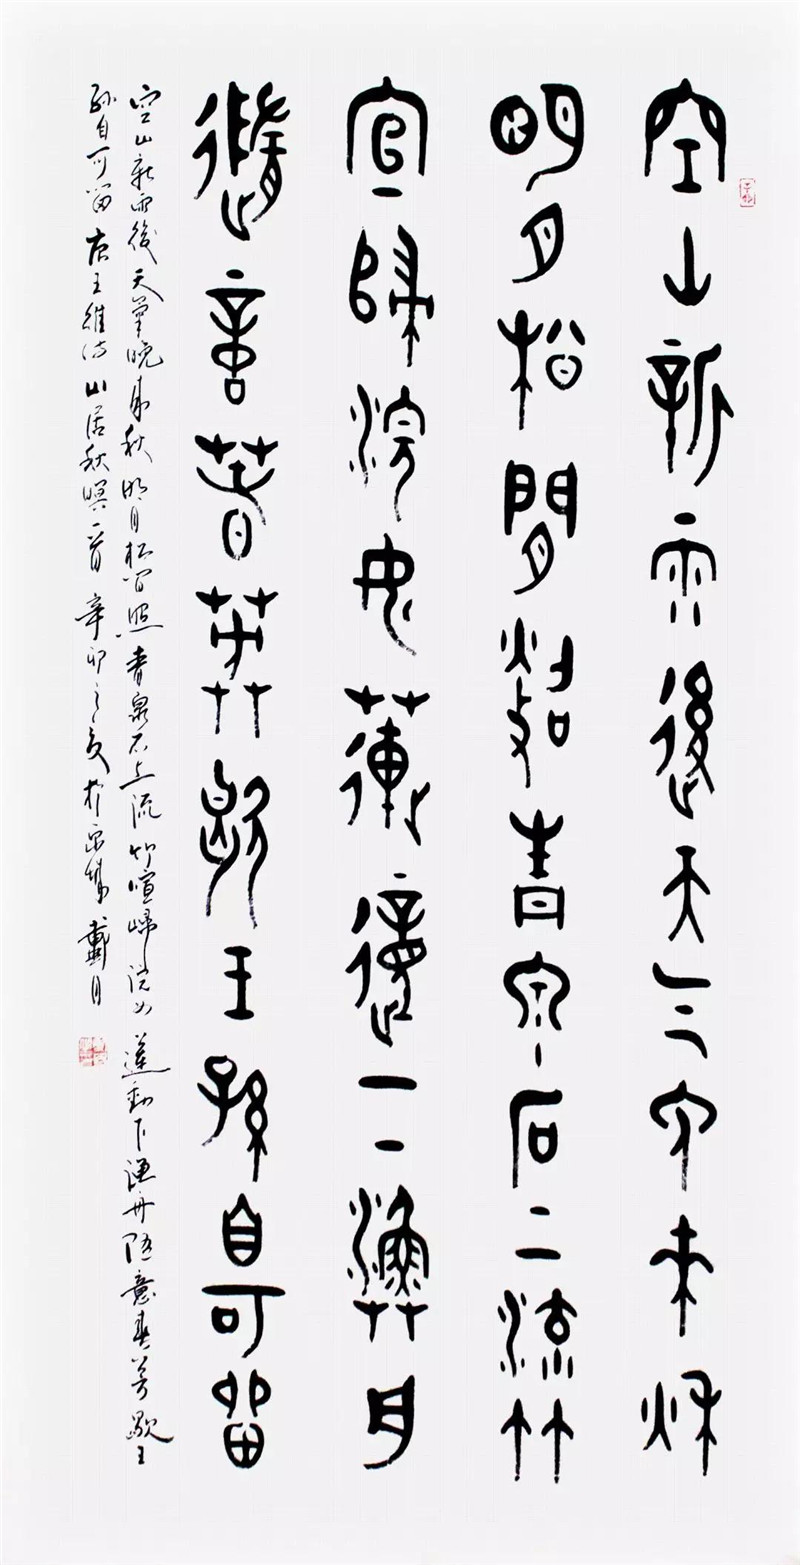 空山新雨後天气晚来秋
明月松間照青泉石上流竹
宣歸浣女蓮動下漁舟
隨意春芳歇王孫自可留
空山新雨後天氣晚来秋明月松間照青泉石上流竹喧歸浣女蓮動下漁舟隨意春芳歇王
孫自可留唐王維詩山居秋暝一首辛卯之夏於京城戴月